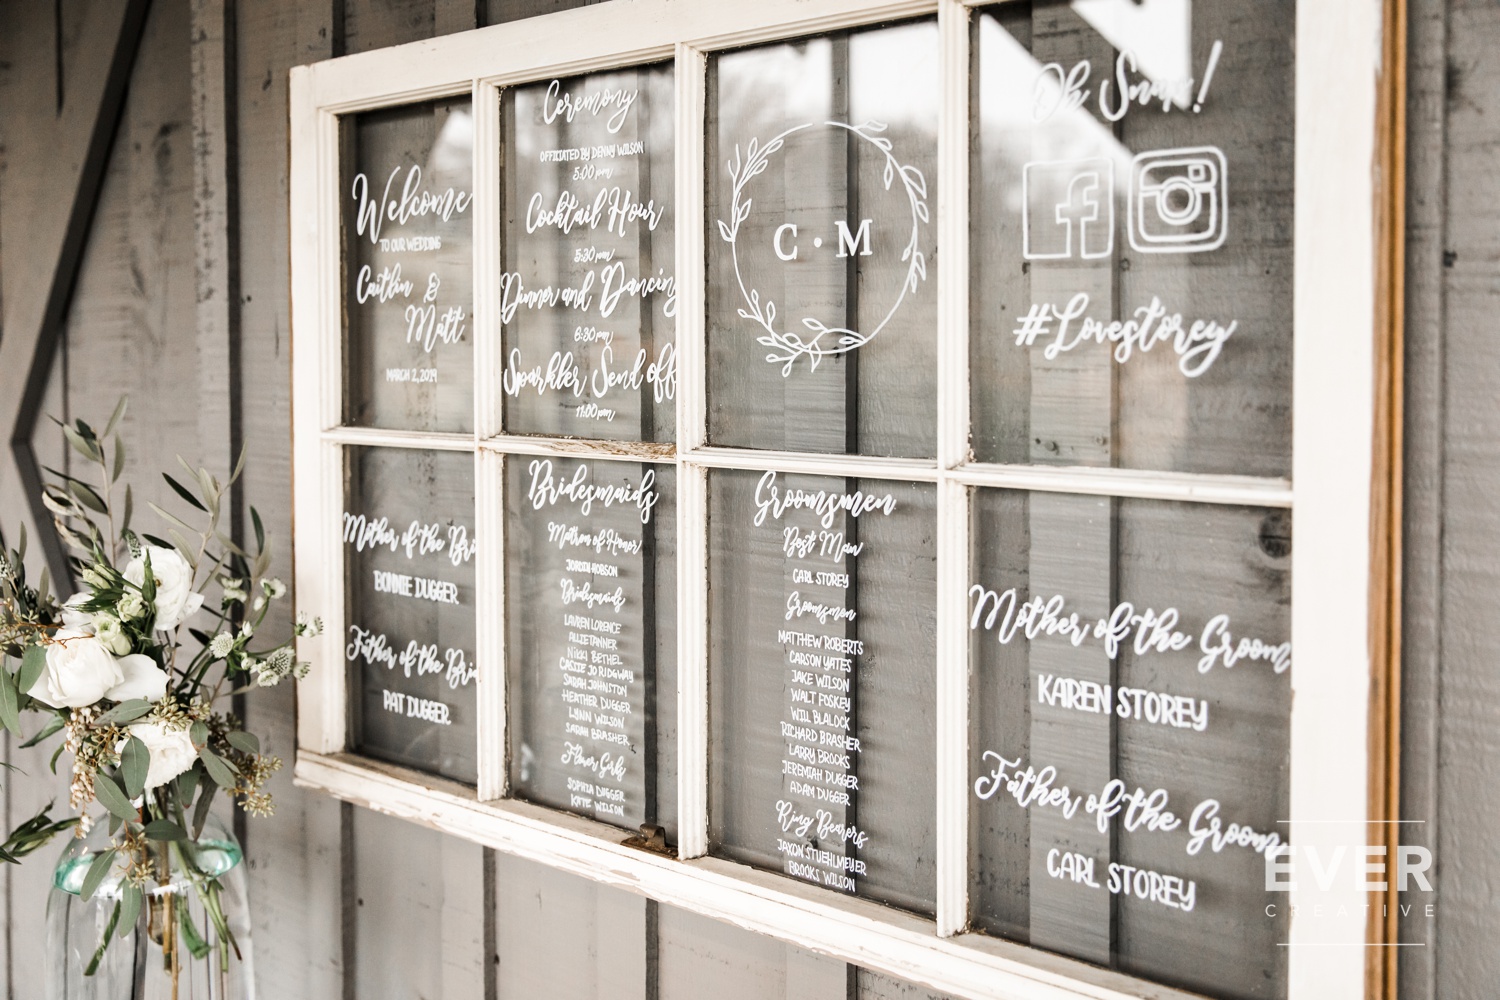 Welcome
TO OUR WEDDING
Caitlin &
Matt
MARCH 2, 2019
Ceremony
OFFICIATED BY DENNY WILSON
5:00 pm
Cocktail Hour
5:30 pm
Dinner and Dancing
6:30 pm
Sparkler Send off
11:00 pm
C · M
Oh Snap!
f
#Lovestorey
Mother of the Bri
BONNIE DUGGER
Father of the Bri
PAT DUGGER
Bridesmaids
Matron of Honor
JORDIN HOBSON
Bridesmaids
LAUREN LORENCE
ALLIE TANNER
NIKKI BETHEL
CASSIE JO RIDGWAY
SARAH JOHNSTON
HEATHER DUGGER
LYNN WILSON
SARAH BRASHER
Flower Girls
SOPHIA DUGGER
KATE WILSON
Groomsmen
Best Man
CARL STOREY
Groomsmen
MATTHEW ROBERTS
CARSON YATES
JAKE WILSON
WALT FOSKEY
WILL BLALOCK
RICHARD BRASHER
LARRY BROOKS
JEREMIAH DUGGER
ADAM DUGGER
Ring Bearers
JAXON STUEHLMEYER
BROOKS WILSON
Mother of the Groom
KAREN STOREY
Father of the Groom
CARL STOREY
EVER
CREATIVE